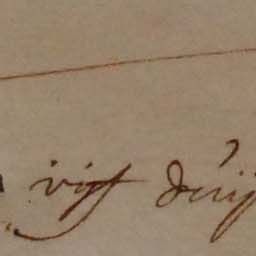 vijf duij